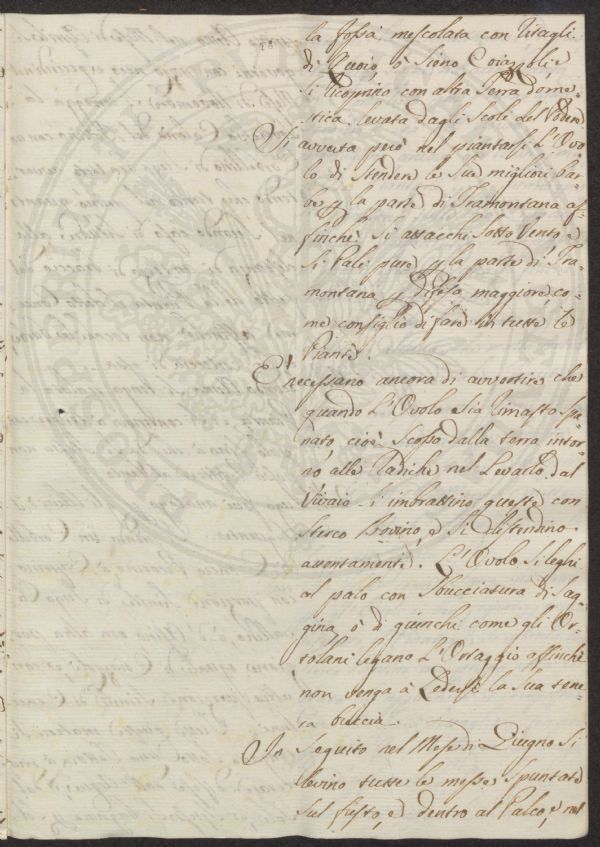 la fossa mescolata con Ritagli
di Cuoio, o siano Coiazzoli, e
si ricoprino con altra Terra dome-
stica levata dagli scoli del Podere
Si avverta però nel piantarsi L'Ovo-
lo di stendere le sue migliori bar-
be p la parte di Tramontana af-
finchè si attacchi sotto Vento e
si Pali pure p la parte di Tra-
montana p difesa maggiore co-
me consiglio di fare in tutte le
Piante.
E' necessario ancora di avvertire che
quando L'Ovolo sia rimasto spu-
nato, cioè scosso dalla terra intor-
no alle Radiche nel Levarlo dal
Vivaio si imbrattino queste con
sterco Bovino, e si distendino
attentamente. L'Ovolo si leghi
al palo con sbucciatura di sag-
gina, o di giunchi come gli Or-
tolani legano L'Ortaggio affinchè
non venga à Ledersi la sua tene-
ra buccia.
In seguito nel Mese di Giugno si
levino tutte le messe spuntate
sul fusto, e dentro al Palco, e nel